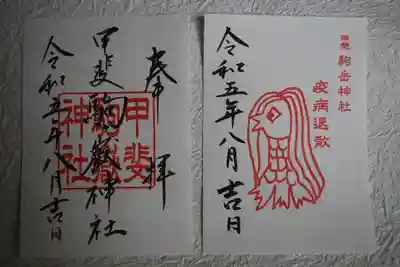 奉拝
甲斐駒嶽神社
令和五年八月吉日
甲斐
駒嶽
神社
駒岳神社
疫病退散
令和五年八月吉日